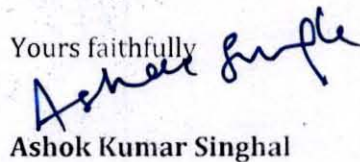 Yours faithfully
Ashok Singhal
Ashok Kumar Singhal